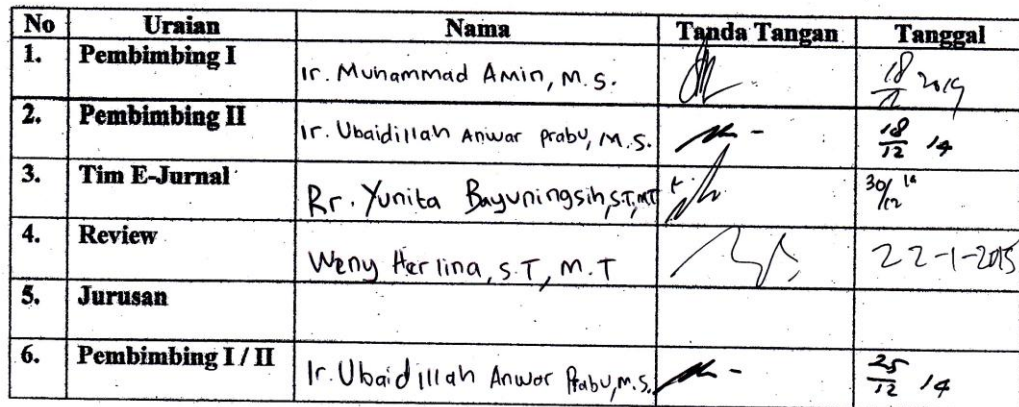 No Uraian Nama Tanda Tangan Tanggal
1. Pembimbing I Ir. Muhammad Amin, M.S. 18/12 2014
2. Pembimbing II Ir. Ubaidillah Anwar Prabu, M.S. 18/12 14
3. Tim E-Jurnal Rr. Yunita Bayuningsih, S.T, MT 30/12 14
4. Review Weny Herlina, S.T, M.T 22-1-2015
5. Jurusan
6. Pembimbing I / II Ir. Ubaidillah Anwar Prabu, M.S. 25/12 14